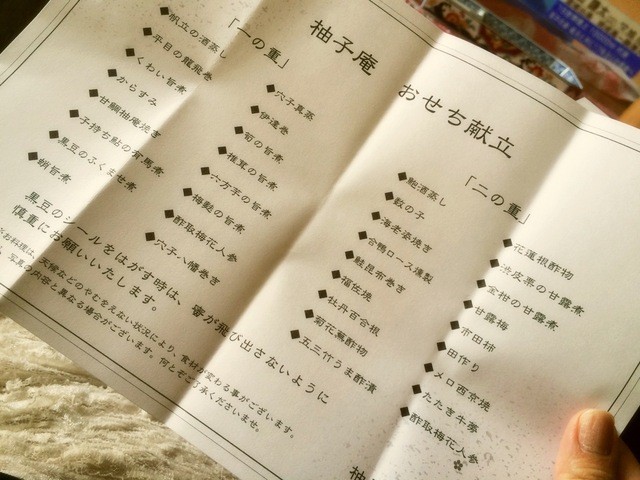 柚子庵 おせち献立
「一の重」
◆帆立の酒蒸し
◆平目の龍飛巻
◆くわい旨煮
◆からすみ
◆甘鯛柚庵焼き
◆子持ち鮎の有馬煮
◆黒豆のふくませ煮
◆蛸旨煮
◆穴子真蒸
◆伊達巻
◆筍の旨煮
◆椎茸の旨煮
◆六方芋の旨煮
◆梅麩の旨煮
◆酢取梅花人参
◆穴子八幡巻き
「二の重」
◆鮑酒蒸し
◆数の子
◆海老姿焼き
◆合鴨ロース燻製
◆鮭昆布巻き
◆福佐焼
◆牡丹百合根
◆菊花蕪酢物
◆五三竹うま酢漬
◆花蓮根酢物
◆渋皮栗の甘露煮
◆金柑の甘露煮
◆甘露梅
◆市田柿
◆田作り
◆メロ西京焼
◆たたき牛蒡
◆酢取梅花人参
黒豆のシールをはがす時は、蜜が飛び出さないように
慎重にお願いいたします。
※お料理は、天候などのやむをえない状況により、食材が変わる事がございます。
写真の内容と異なる場合がございます。何とぞご了承くださいませ。